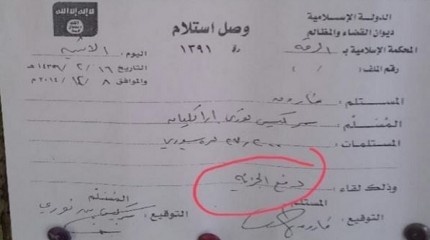 لا إله إلا الله
الدولة الإسلامية
ديوان القضاء والمظالم
المحكمة الإسلامية بـ الرقة
رقم الملف: / /
وصل استلام
رقم ١٣٩١
اليوم: الاثنين
التاريخ ١٦ / ٢ / ١٤٣٦ هـ
والموافق ٨ / ١٢ / ٢٠١٤ م
المستلم: فاروق
المُسَلِّم: سركيس نوري اراكليان
المستلمات: سوري
وذلك لقاء: دفع الجزية
المستلم
التوقيع: فاروق
المُسَلِّم
التوقيع: سركيس نوري